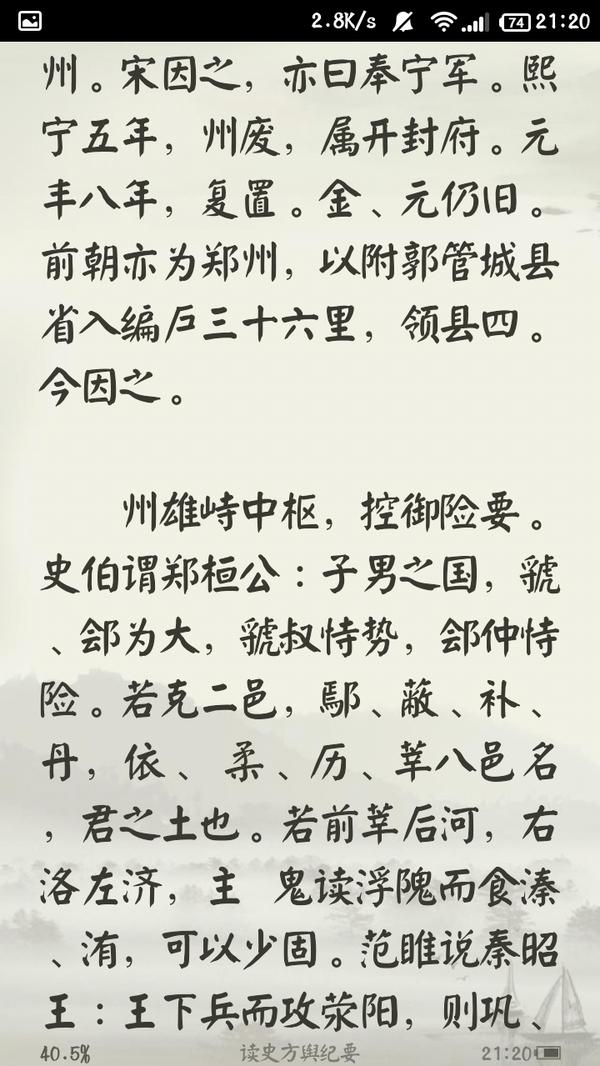 2.8K/s 74 21:20
州。宋因之，亦曰奉宁军。熙
宁五年，州废，属开封府。元
丰八年，复置。金、元仍旧。
前朝亦为郑州，以附郭管城县
省入编户三十六里，领县四。
今因之。
州雄峙中枢，控御险要。
史伯谓郑桓公：子男之国，虢
、郐为大，虢叔恃势，郐仲恃
险。若克二邑，鄢、蔽、补、
丹，依、柔、历、莘八邑名
，君之土也。若前莘后河，右
洛左济，主 鬼读浮隗而食溱
、洧，可以少固。范睢说秦昭
王：王下兵而攻荥阳，则巩、
40.5% 读史方舆纪要 21:20